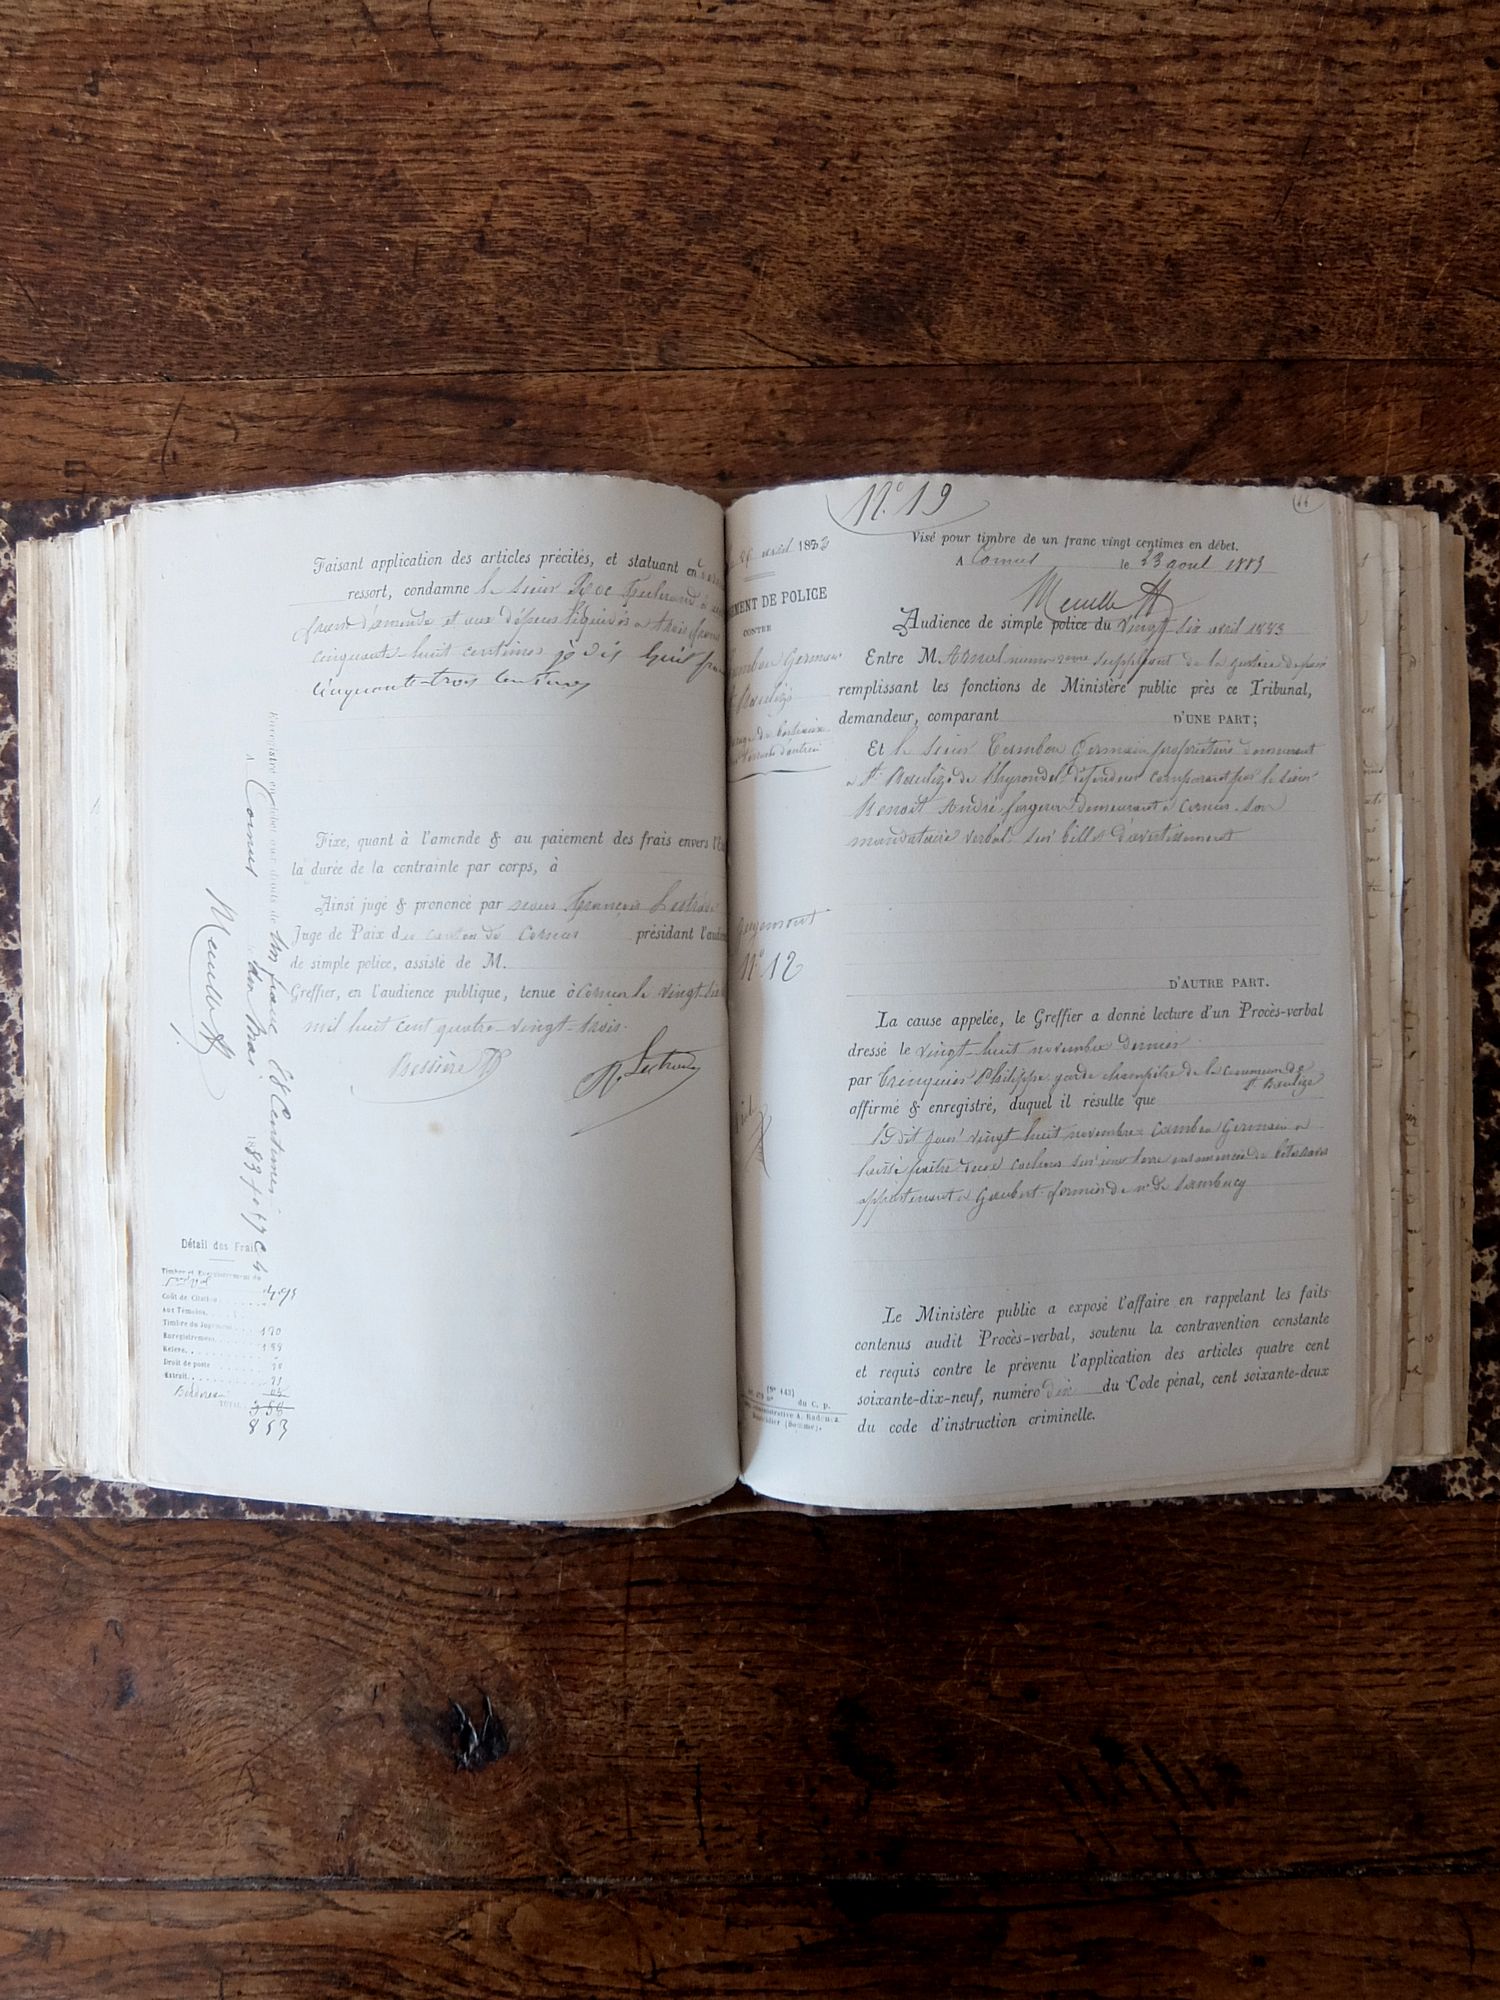 Faisant application des articles précités, et statuant en
ressort, condamne le sieur Roc
d'amende et aux dépens liquidés à trois francs
cinquante-huit centimes
cinquante-trois centimes
Fixe, quant à l'amende & au paiement des frais envers l'E
la durée de la contrainte par corps, à
Ainsi jugé & prononcé par nous François
Juge de Paix du canton de Cornus présidant l'audi
de simple police, assisté de M.
Greffier, en l'audience publique, tenue à Cornus le vingt-six
mil huit cent quatre-vingt-trois.
Bessière
Enregistré en débet aux droits de Un franc 88 Centimes
A Cornus le Un Mai 1883
Détail des Frais
Timbre et Enregistrement du
Coût de Citation
Aux Témoins
Timbre du Jugement 120
Enregistrement 188
Relevé
Droit de poste
Extrait
Bordereau
TOTAL 358
853
N° 19
avril 1883
EMENT DE POLICE
CONTRE
Cambon Germain
St Baulize
Jugement
N° 12
[N° 443]
du C. p.
administrative A. Radenez
Montdidier (Somme).
Visé pour timbre de un franc vingt centimes en débet.
A Cornus le 23 aout 1883
Audience de simple police du vingt six avril 1883
Entre M. suppléant de la justice de paix
remplissant les fonctions de Ministère public près ce Tribunal,
demandeur, comparant D'UNE PART;
Et le sieur Cambon Germain propriétaire demeurant
à St Baulize de défendeur comparant par le sieur
Benoit André forgeron demeurant à Cornus son
mandataire verbal sur billet d'avertissement
D'AUTRE PART.
La cause appelée, le Greffier a donné lecture d'un Procès-verbal
dressé le vingt-huit novembre dernier
par Trinquier Philippe garde champêtre de la commune de
St Baulize
affirmé & enregistré, duquel il résulte que
Le dit jour vingt huit novembre Cambon Germain a
laissé paître deux cochons sur une terre ensemencée de betteraves
appartenant à Gaubert fermier de Mr de Sambucy
Le Ministère public a exposé l'affaire en rappelant les faits
contenus audit Procès-verbal, soutenu la contravention constante
et requis contre le prévenu l'application des articles quatre cent
soixante-dix-neuf, numéro dix du Code pénal, cent soixante-deux
du code d'instruction criminelle.